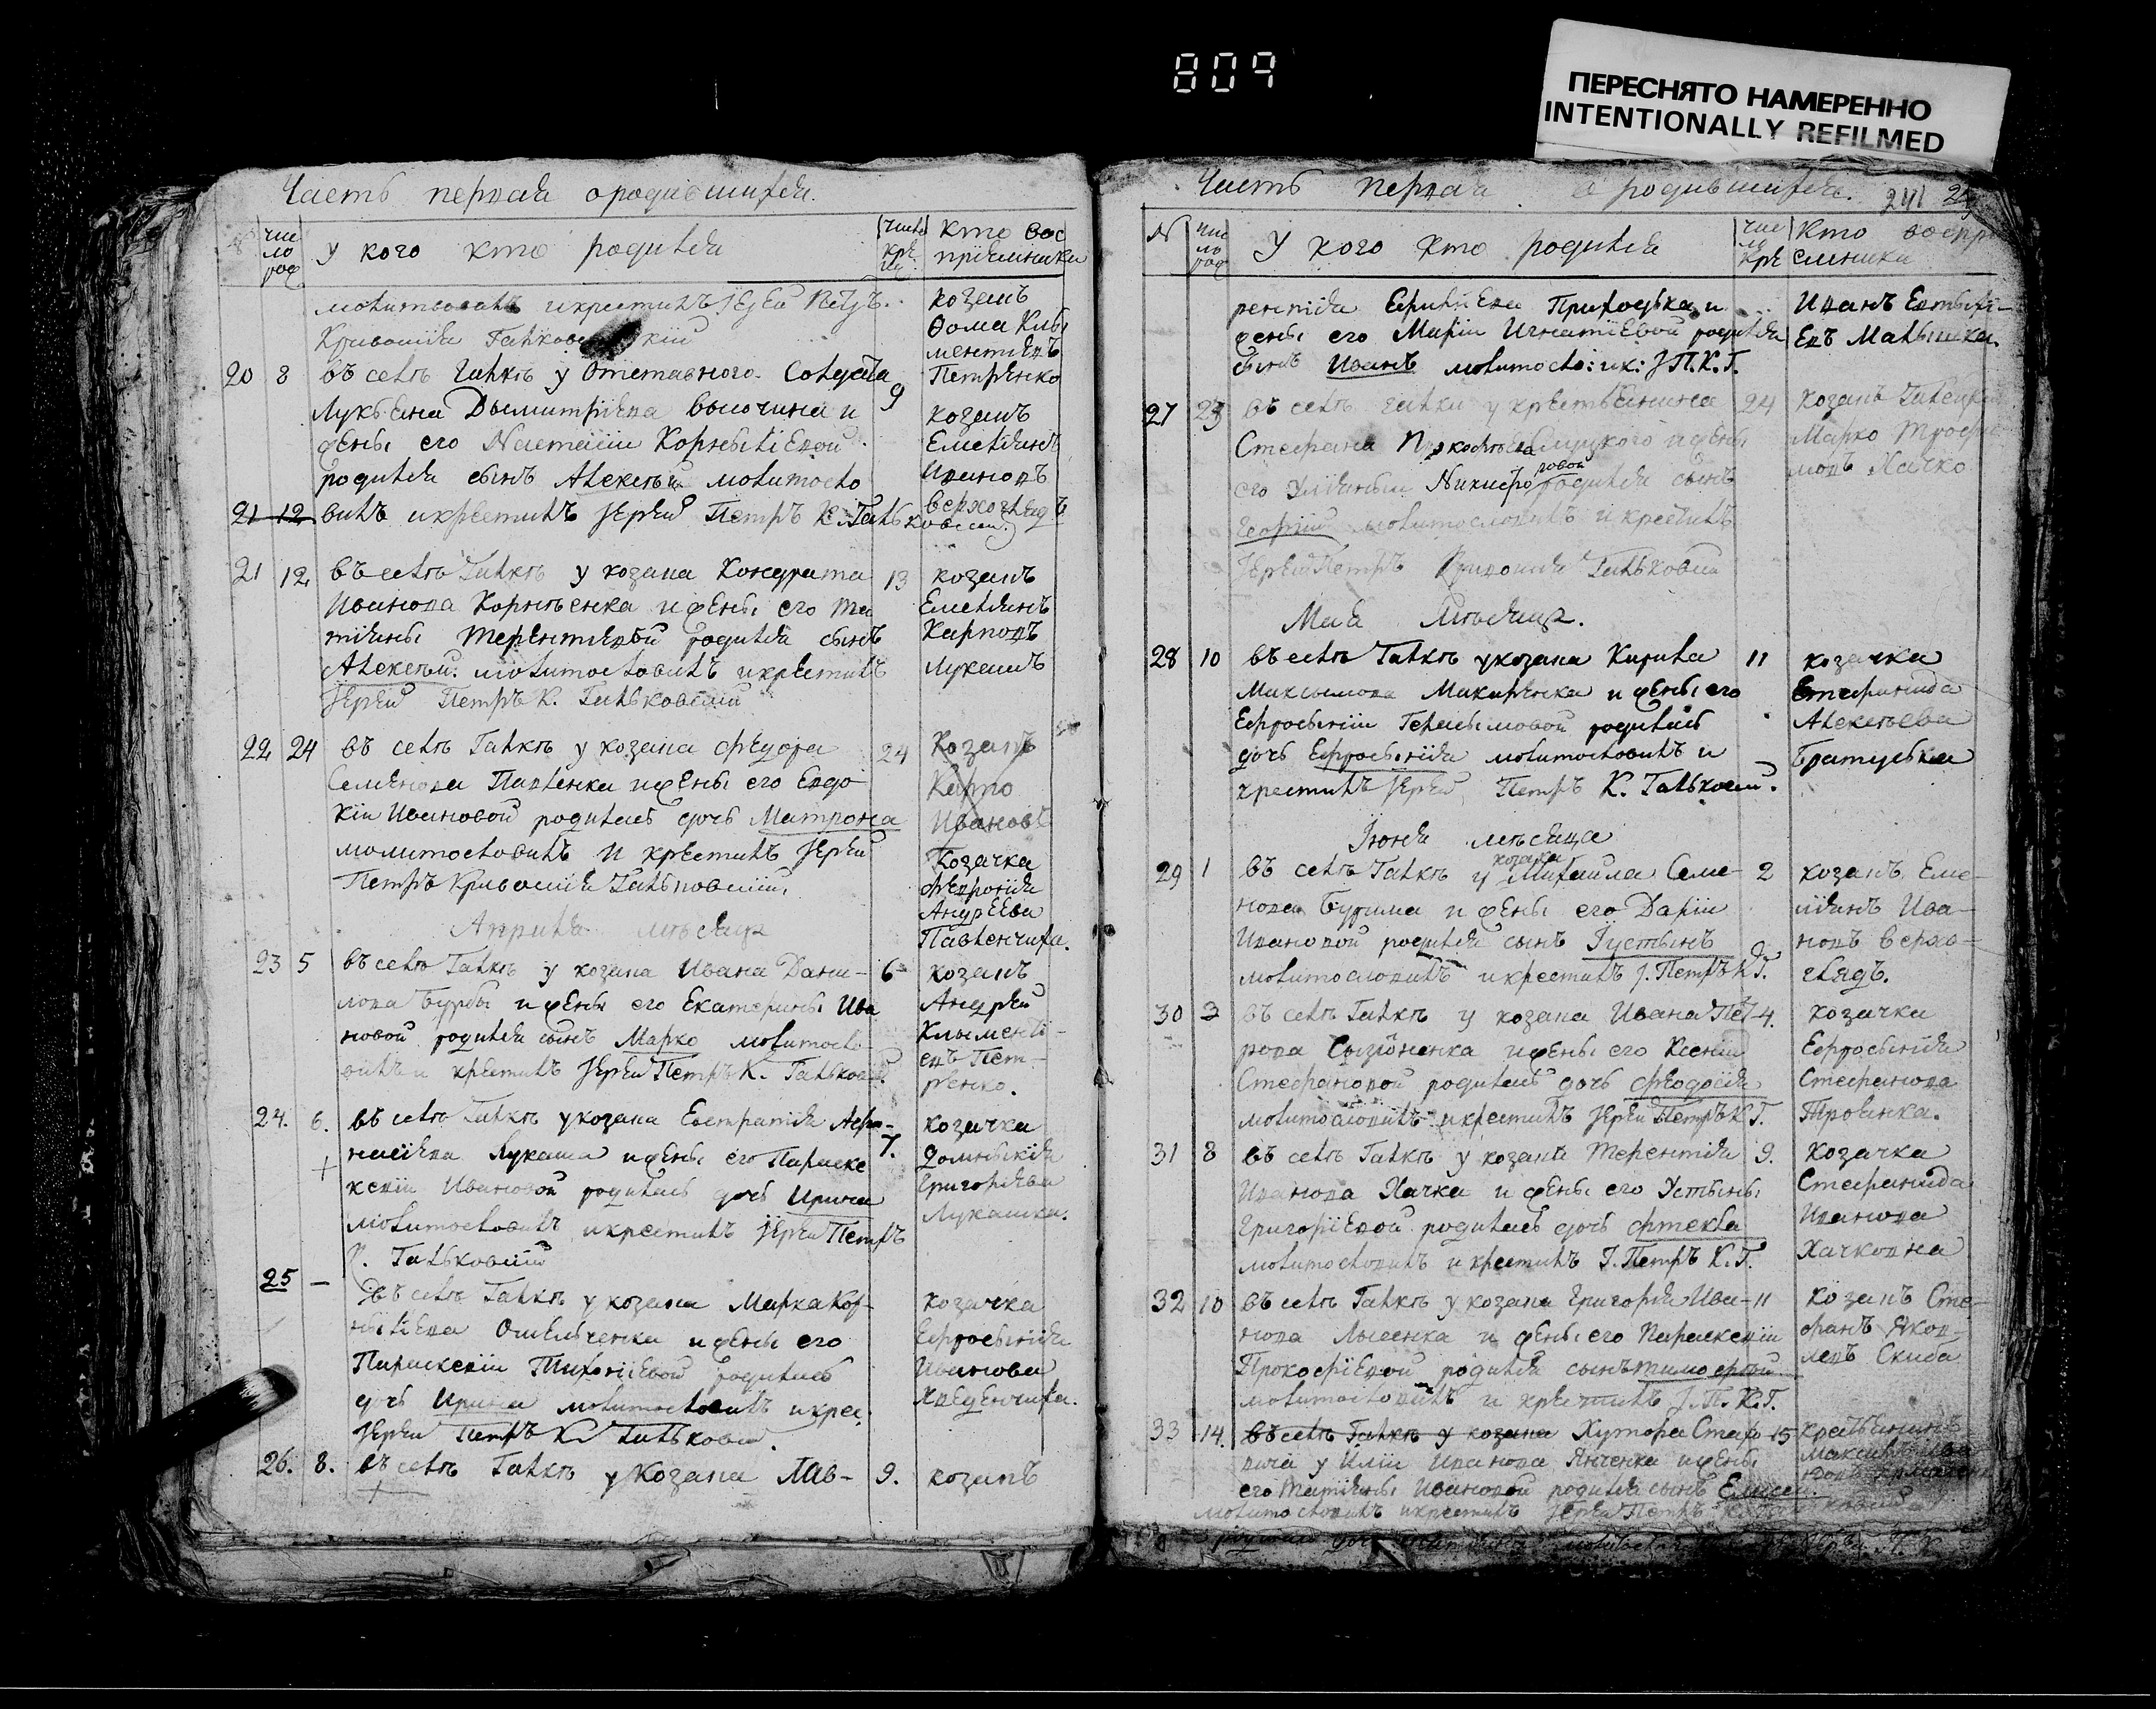 809
ПЕРЕСНЯТО НАМЕРЕННО
INTENTIONALLY REFILMED
Часть первая о родившихся.
чис ло род
У кого кто родился
число кре щ
кто вос приемники
молитвовалъ и крестилъ Іерей Петръ
Кривошія Галковскій
козакъ
Ѳома Кли
ментіевъ
Петренко
20 8 въ селѣ Галкѣ у отставного солдата 9
Лукьяна Дымитріева Высочина и
жены его Настасіи Корныліевой
родился сынъ Алексѣй молитвосло
21 12 вилъ и крестилъ Іерей Петръ К. Галь ковскій
козакъ
Емеліянъ
Ивановъ
Верхогляд
21 12 въ селѣ Галкѣ у козака Кондрата 13
Иванова Корнѣенка и жены его Та
тіяны Терентіевой родился сынъ
Алексѣй молитвословилъ и крестилъ
Іерей Петръ К. Гальковскій
козакъ
Емеліянъ
Карповъ
Лукашъ
22 24 въ селѣ Галкѣ у козака Федора 24
Семенова Павленка и жены его Евдо
кіи Ивановой родилась дочь Матрона
молитвословилъ и крестилъ Іерей
Петръ Кривошія Гальковскій
Козакъ
Карпо
Ивановъ
Козачка
Февронія
Андреева
Павленчиха.
Априля мѣсяца
23 5 въ селѣ Галкѣ у козака Ивана Дани- 6
лова Бурбы и жены его Екатерины Ива
новой родился сынъ Марко молитвосло
вилъ и крестилъ Іерей Петръ К. Гальковскій
козакъ
Андрей
Клыменті-
евъ Пет-
ренко.
24. 6. въ селѣ Галкѣ у козака Евстратія Афа- 7.
насіева Лукаша и жены его Параске
кевіи Ивановой родилась дочь Ирина
молитвословилъ и крестилъ Іерей Петръ
К. Гальковскій
козачка
Домныкія
Григоріева
Лукашка.
25 — Въ селѣ Галкѣ у козака Марка Кор-
ныліева Омельченка и жены его
Параскевіи Тихоніевой родилась
дочь Ирина молитвословилъ и крес.
Іерей Петръ К. Гальковск.
козачка
Ефросынія
Иванова
26. 8. въ селѣ Галкѣ у козака Лав- 9. козакъ
Часть первая о родившихся. 241
№
чис ло род
У кого кто родился
чис ло кре
Кто воспрі
емники
рентія Ефиміева Приходька и
жены его Маріи Игнатіевой родился
сынъ Иванъ молитвосло: и к: І. П. К. Г.
Иванъ Евтыхі-
евъ Малышка.
27 23 въ селѣ Галки у крестьянина 24
его Уліяныи Никифо ровой родился сынъ
Георгій молитвословилъ и крестилъ
Іерей Петръ Кривошія Гальковскій
козакъ
Марко Трофи
мовъ Хачко
Мая мѣсяца.
28 10 въ селѣ Галкѣ у козака Кирила 11
Максымова Макаренка и жены его
Ефросыніи Герасымовой родилась
дочь Ефросынія молитвословилъ и
крестилъ Іерей Петръ К. Гальковскій.
козачка
Стефанида
Алексѣева
Братуська
Іюня мѣсяца
козака
29 1 въ селѣ Галкѣ у Михаила Семе- 2
нова Бурима и жены его Даріи
Ивановой родился сынъ Іустынъ
молитвословилъ и крестилъ І. Петръ К. Г.
козакъ Еме-
ліянъ Ива-
новъ Верхо-
глядъ.
30 3 въ селѣ Галкѣ у козака Ивана Пет- 4.
рова Сызоненка и жены его Ксеніи
Стефановой родилась дочь Феодосія
молитвословилъ и крестилъ Іерей Петръ К. Г.
козачка
Ефросынія
Стефанова
Троянка.
31 8 въ селѣ Галкѣ у козака Терентія 9.
Иванова Хачка и жены его Устыны
Григоріевой родилась дочь Фтекла
молитвословилъ и крестилъ І. Петръ К. Г.
козачка
Стефанида
Иванова
Хачковна
32 10 въ селѣ Галкѣ у козака Григорія Ива- 11
нова Лысенка и жены его Параскевіи
Прокофіевой родился сынъ Тимофтей
молитвословилъ и крестилъ І. П. К. Г.
козакъ Сте-
фанъ Яков-
левъ Скиба
33 14. въ селѣ Галкѣ у козака Хутора 15
у Иліи Иванова Янченка и жены
его Татіяны Ивановой родился сынъ Елисей
молитвословилъ и крестилъ Іерей Петръ
крестьянинъ
Максимъ